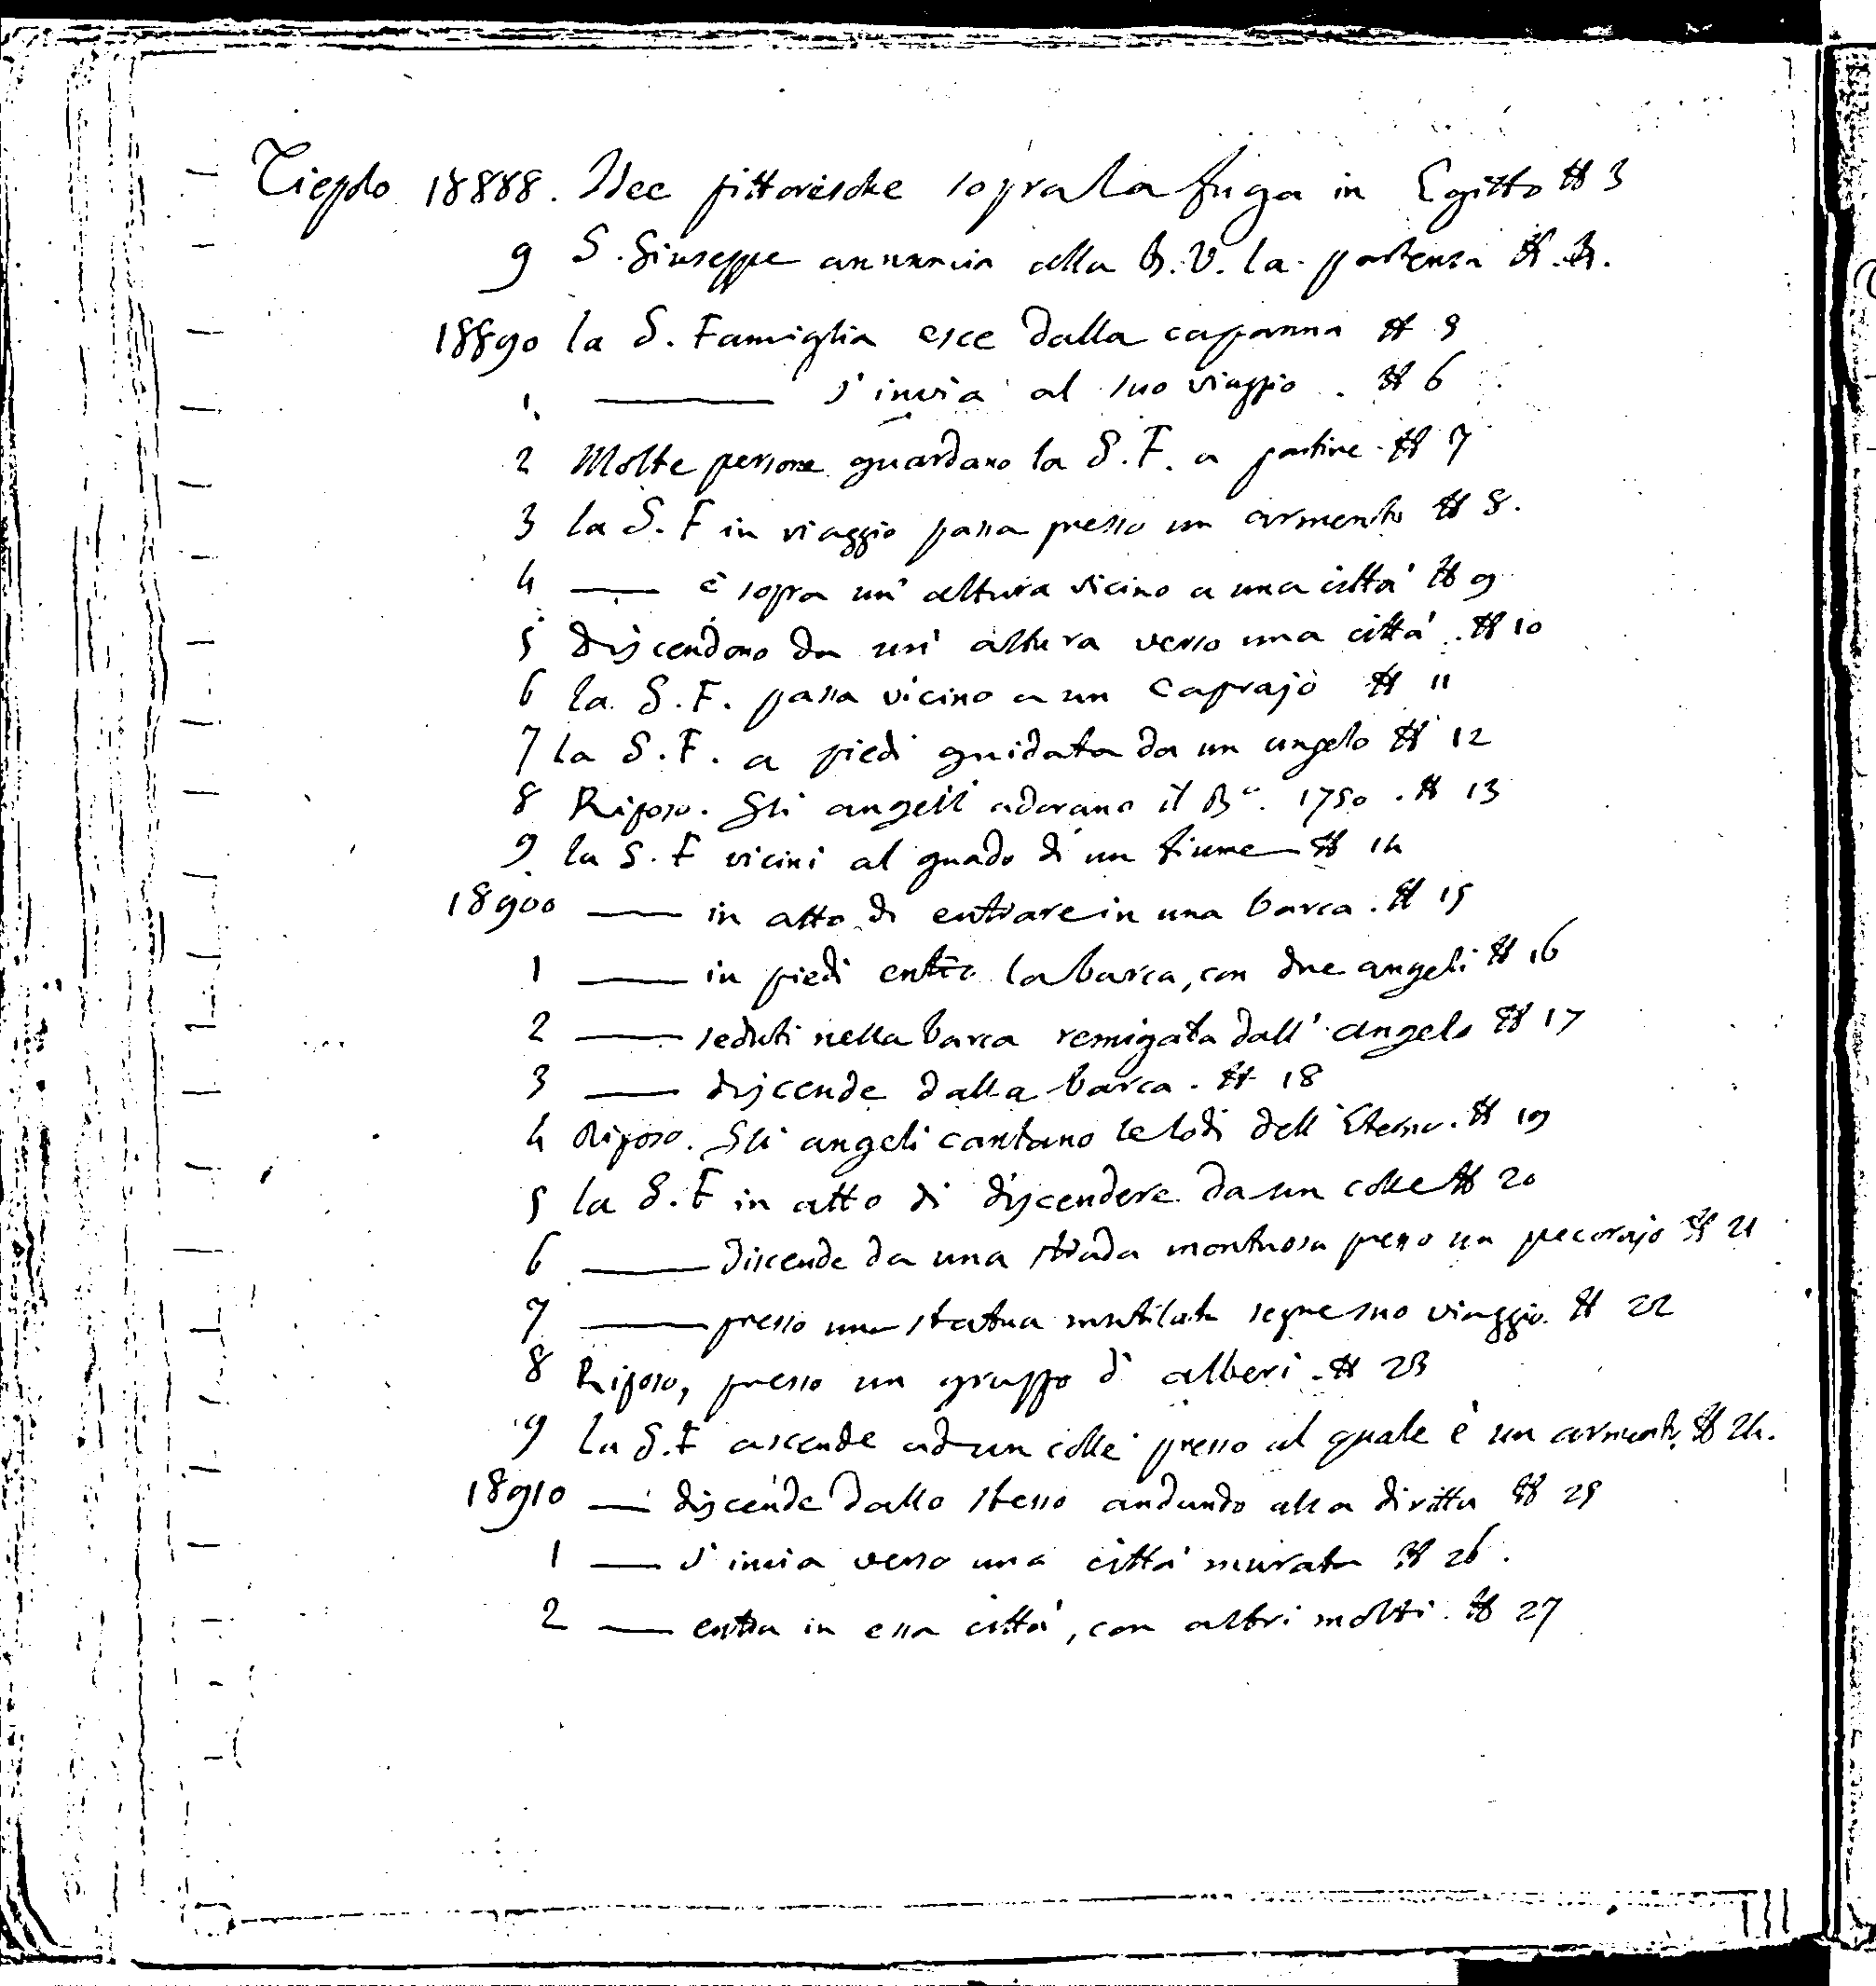 Tiepolo 18888. Idee pittoresche sopra la fuga in Egitto # 3
9 S. Giuseppe annuncia alla B. V. la partenza #.
18890 la S. Famiglia esce dalla capanna # 5
1 —— s'invia al suo viaggio. # 6
2 Molte persone guardano la S. F. a partire. # 7
3 la S. F in viaggio passa presso un armento # 8.
4 —— è sopra un' altura vicino a una città # 9
5 discendono da un' altura verso una città. # 10
6 la S. F. passa vicino a un caprajo # 11
7 la S. F. a piedi guidata da un angelo # 12
8 Riposo. Gli angeli adorano il Bº. 1750. # 13
9 la S. F vicini al guado di un fiume # 14
18900 —— in atto di entrare in una barca. # 15
1 —— in piedi entro la barca, con due angeli # 16
2 —— seduti nella barca remigata dall' angelo # 17
3 —— discende dalla barca. # 18
4 Riposo. Gli angeli cantano le lodi dell' Eterno. # 19
5 la S. F in atto di discendere da un colle # 20
6 —— discende da una strada montuosa presso un pecorajo # 21
7 —— presso una statua mutilata segue suo viaggio. # 22
8 Riposo, presso un gruppo di alberi. # 23
9 la S. F ascende ad un colle presso al quale è un armento. # 24.
18910 —— discende dallo stesso andando alla diritta # 25
1 —— s'invia verso una città murata # 26.
2 —— entra in essa città, con altri molti. # 27